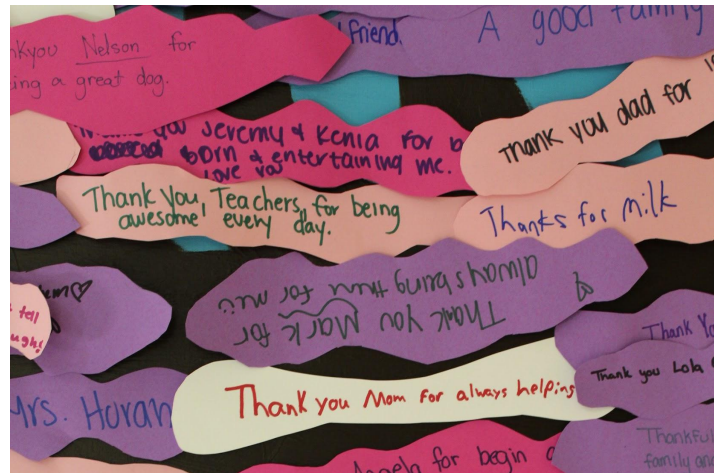 nkyou Nelson for
ing a great dog.
friend.
A good family
you Jeremy & Kenia for b
born & entertaining me.
love you
Thank you dad for
Thank you, Teachers, for being
awesome every day.
Thanks for milk
Thank you Mark for
always being there for me
tell
ough!
Mrs. Horan
Thank you Mom for always helping
Thank Yo
Thank you Lola
Thankful
family an
Angela for begin